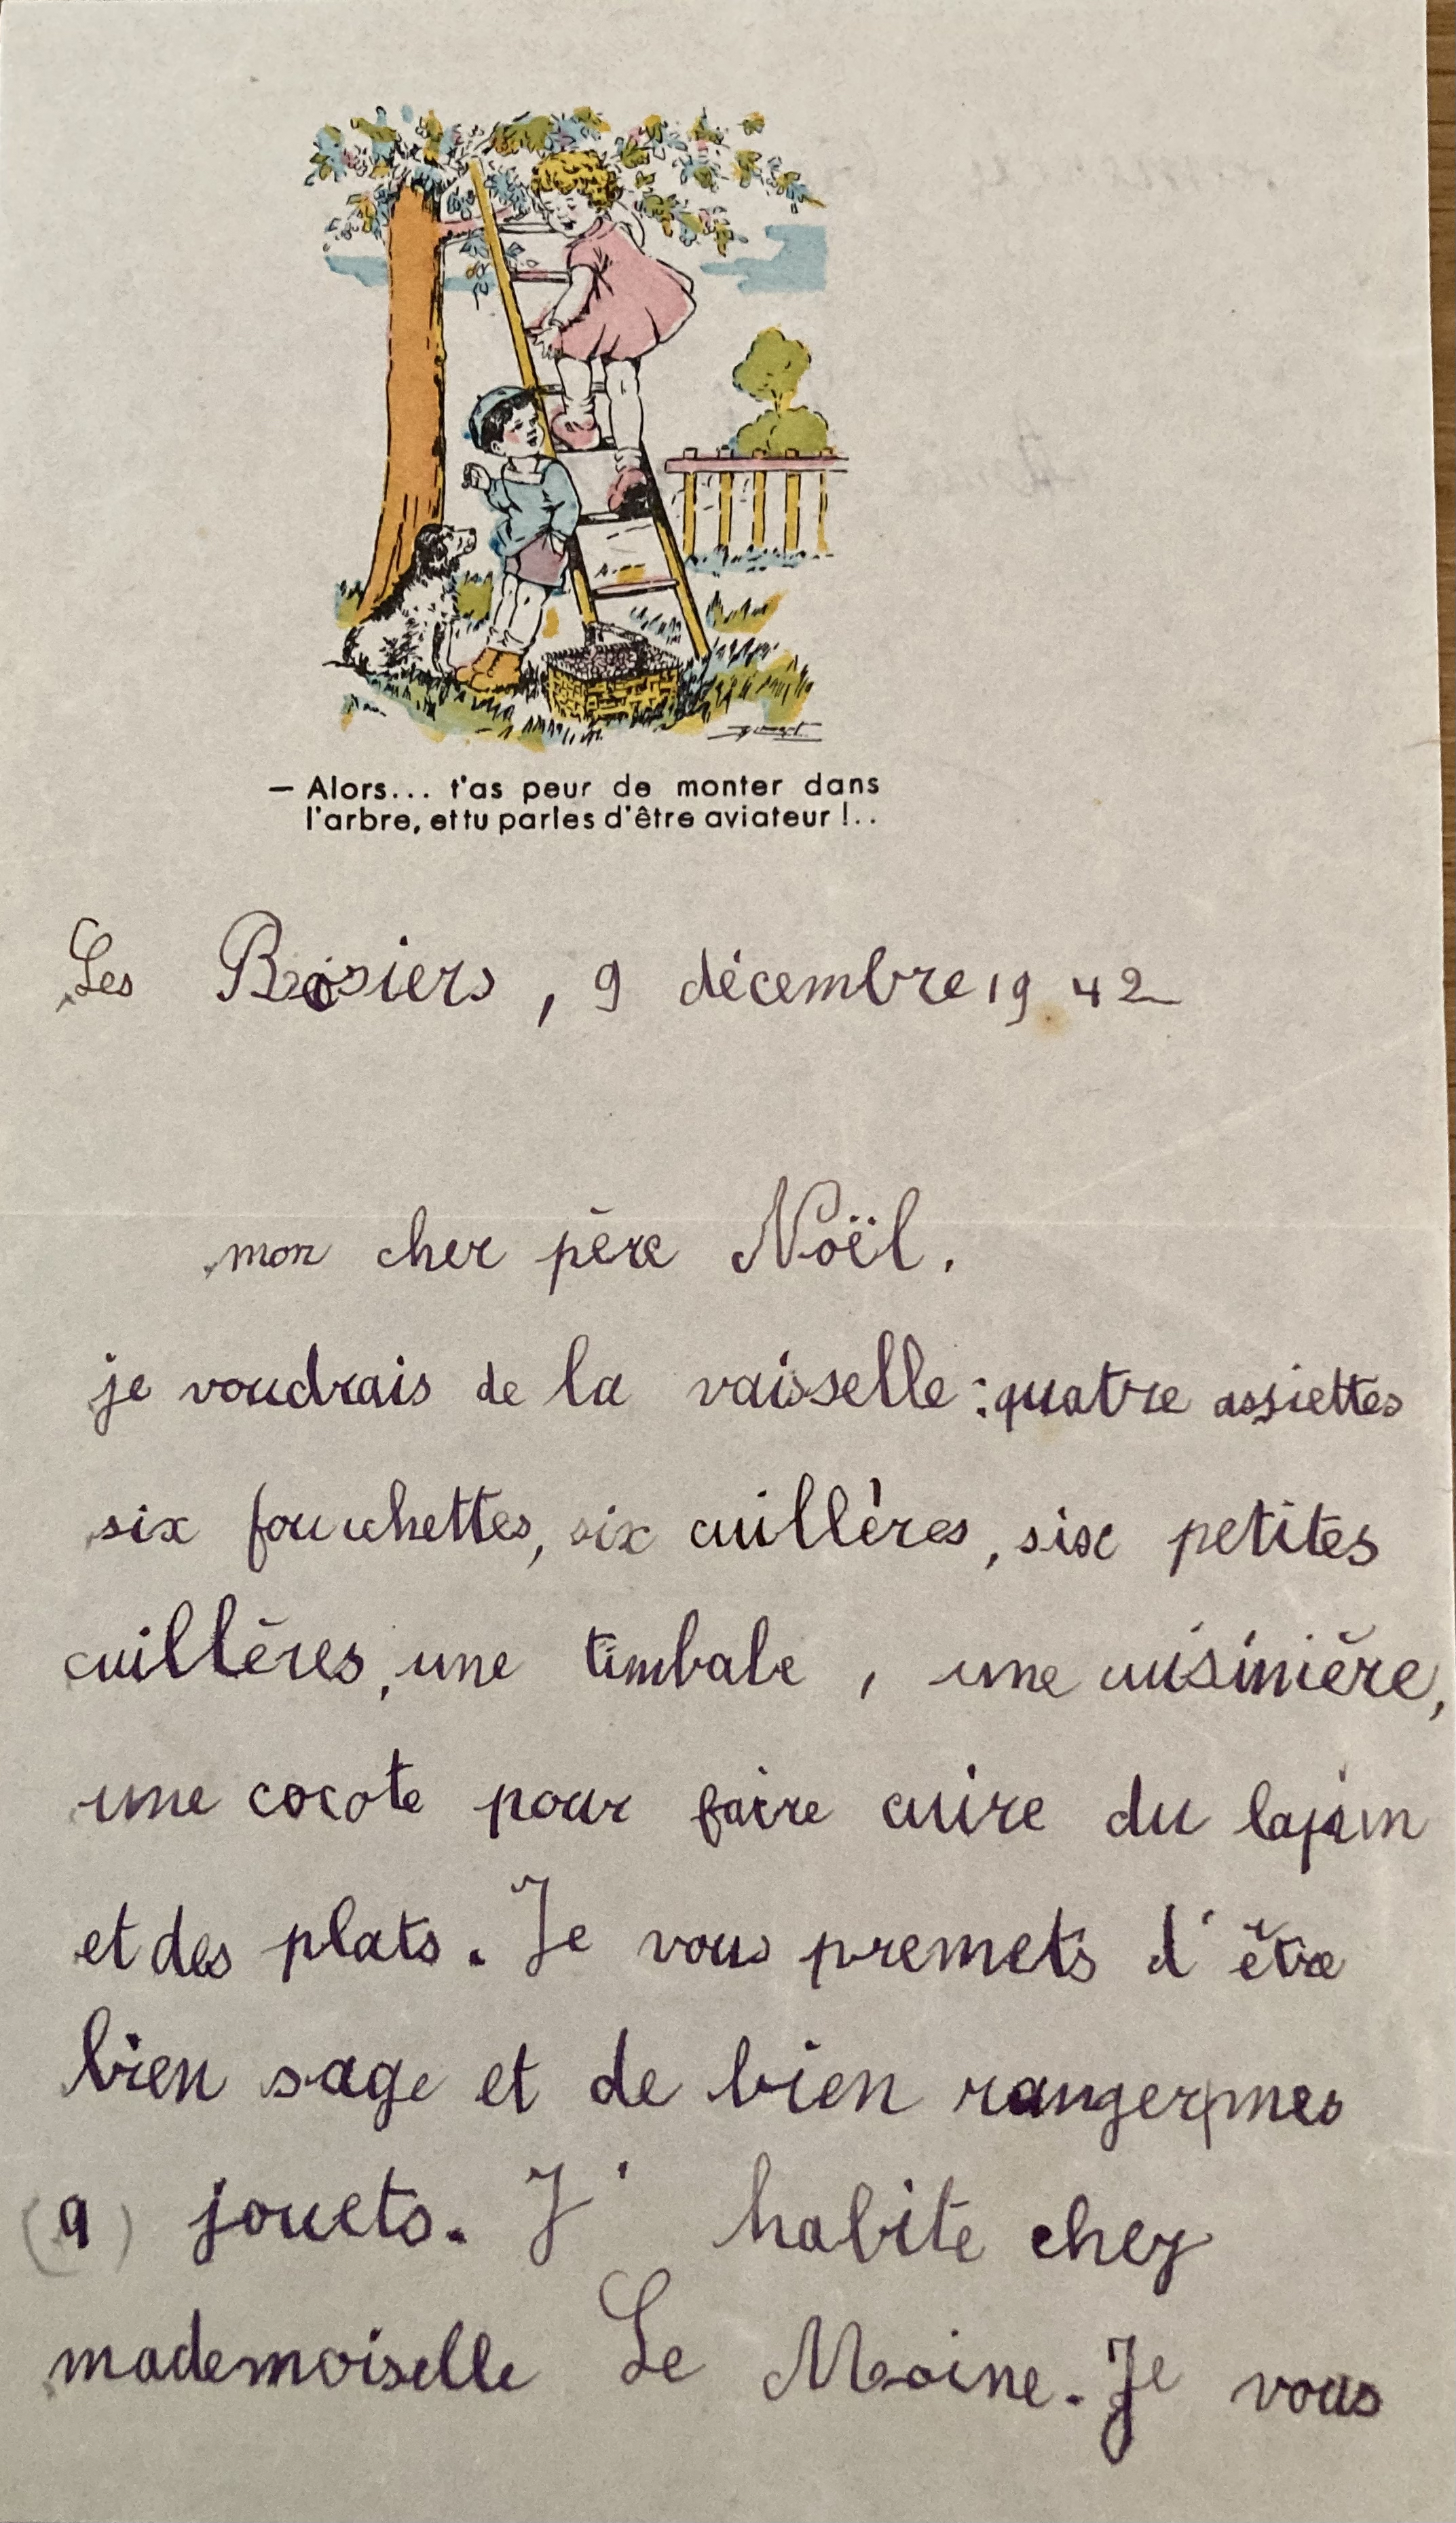 — Alors... t'as peur de monter dans
l'arbre, et tu parles d'être aviateur !..
Les Rosiers, 9 décembre 1942
mon cher père Noël.
je voudrais de la vaisselle : quatre assiettes
six fourchettes, six cuillères, six petites
cuillères, une timbale, une cuisinière,
une cocote pour faire cuire du lapin
et des plats. Je vous premets d'être
bien sage et de bien ranger mes
(9) jouets. J'habite chez
mademoiselle Le Moine. Je vous